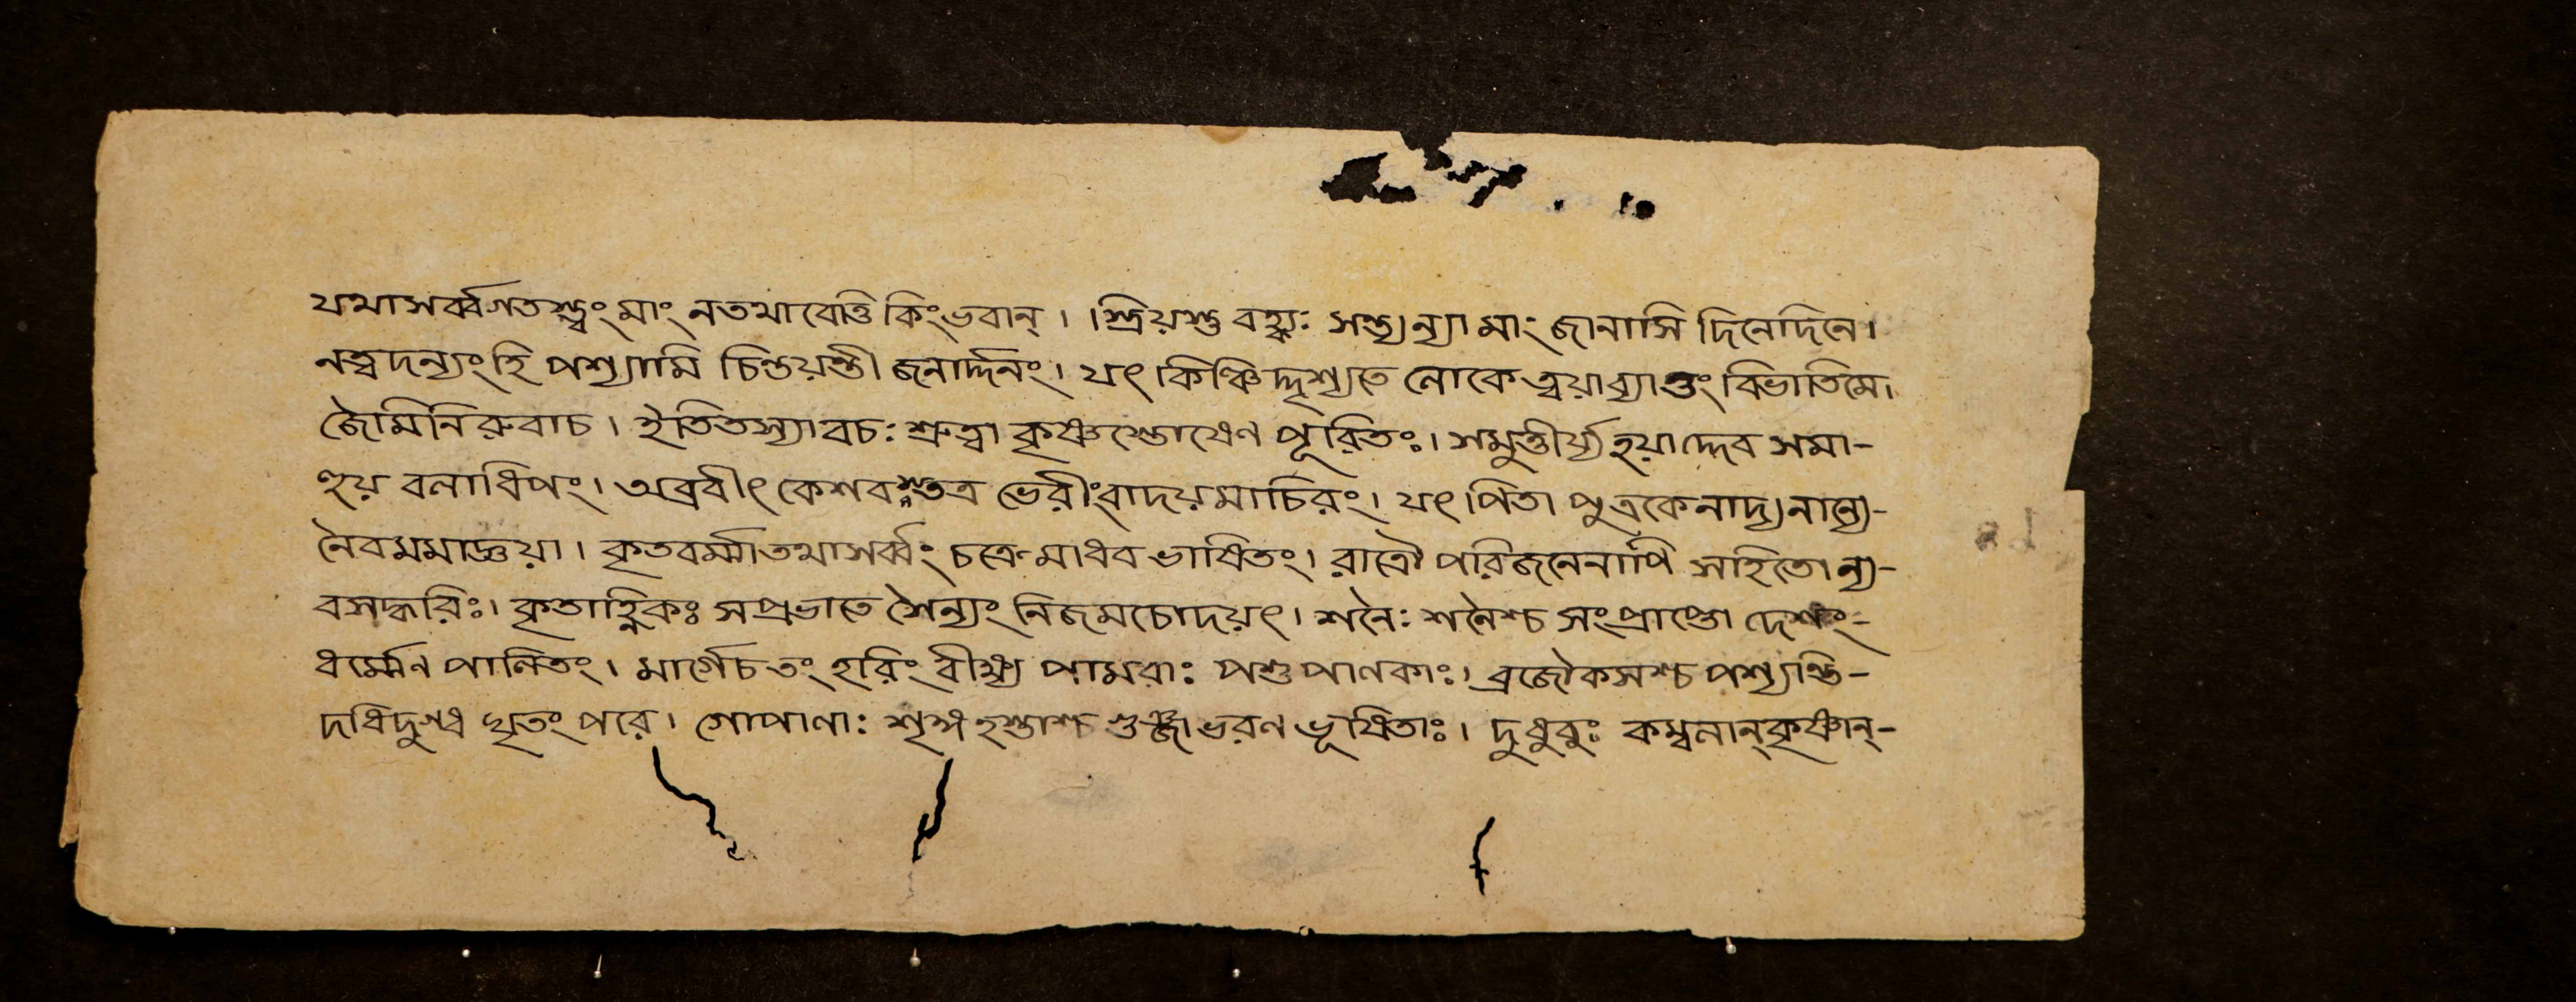 যথাসর্ব্বগতস্ত্বং মাং নতথাবেত্তি কিংভবান্। স্ত্রিয়স্তু বহ্ব্যঃ সন্ত্যন্যা মাং জানাসি দিনেদিনে।
নত্বদন্যংহি পশ্যামি চিন্তয়ন্তী জনার্দ্দনং। যৎ কিঞ্চিদ্দৃশ্যতে লোকে ত্বয়াব্যাপ্তং বিভাতিমে।
জৈমিনিরুবাচ। ইতিতস্যাবচঃ শ্রুত্বা কৃষ্ণস্তোষেণ পূরিতঃ। সমুত্তীর্য্য হয়াদ্দেব সমা-
হূয় বলাধিপং। অব্রবীৎ কেশবস্তত্র ভেরীংবাদয়মাচিরং। যৎ পিতা পুত্রকেনাদ্য নান্যে-
নৈবমমাজ্ঞয়া। কৃতবর্ম্মাতথাসর্ব্বং চক্রে মাধব ভাষিতং। রাত্রৌ পরিজনেনাপি সহিতো ন্য-
বসদ্ধরিঃ। কৃতাহ্নিকঃ সপ্রভাতে শৈন্যং নিজমচোদয়ৎ। শনৈঃ শনৈশ্চ সংপ্রাপ্তো দেশং-
ধর্ম্মেণ পালিতং। মার্গেচ তং হরিং বীক্ষ্য পামরাঃ পশু পালকাঃ। ব্রজৌকসশ্চ পশ্যন্তি-
দধিদুগ্ধ ঘৃতং পরে। গোপালাঃ শৃঙ্গ হস্তাশ্চ গুঞ্জাভরণ ভূষিতাঃ। দুধুবুঃ কম্বলান্ কৃষ্ণান্-